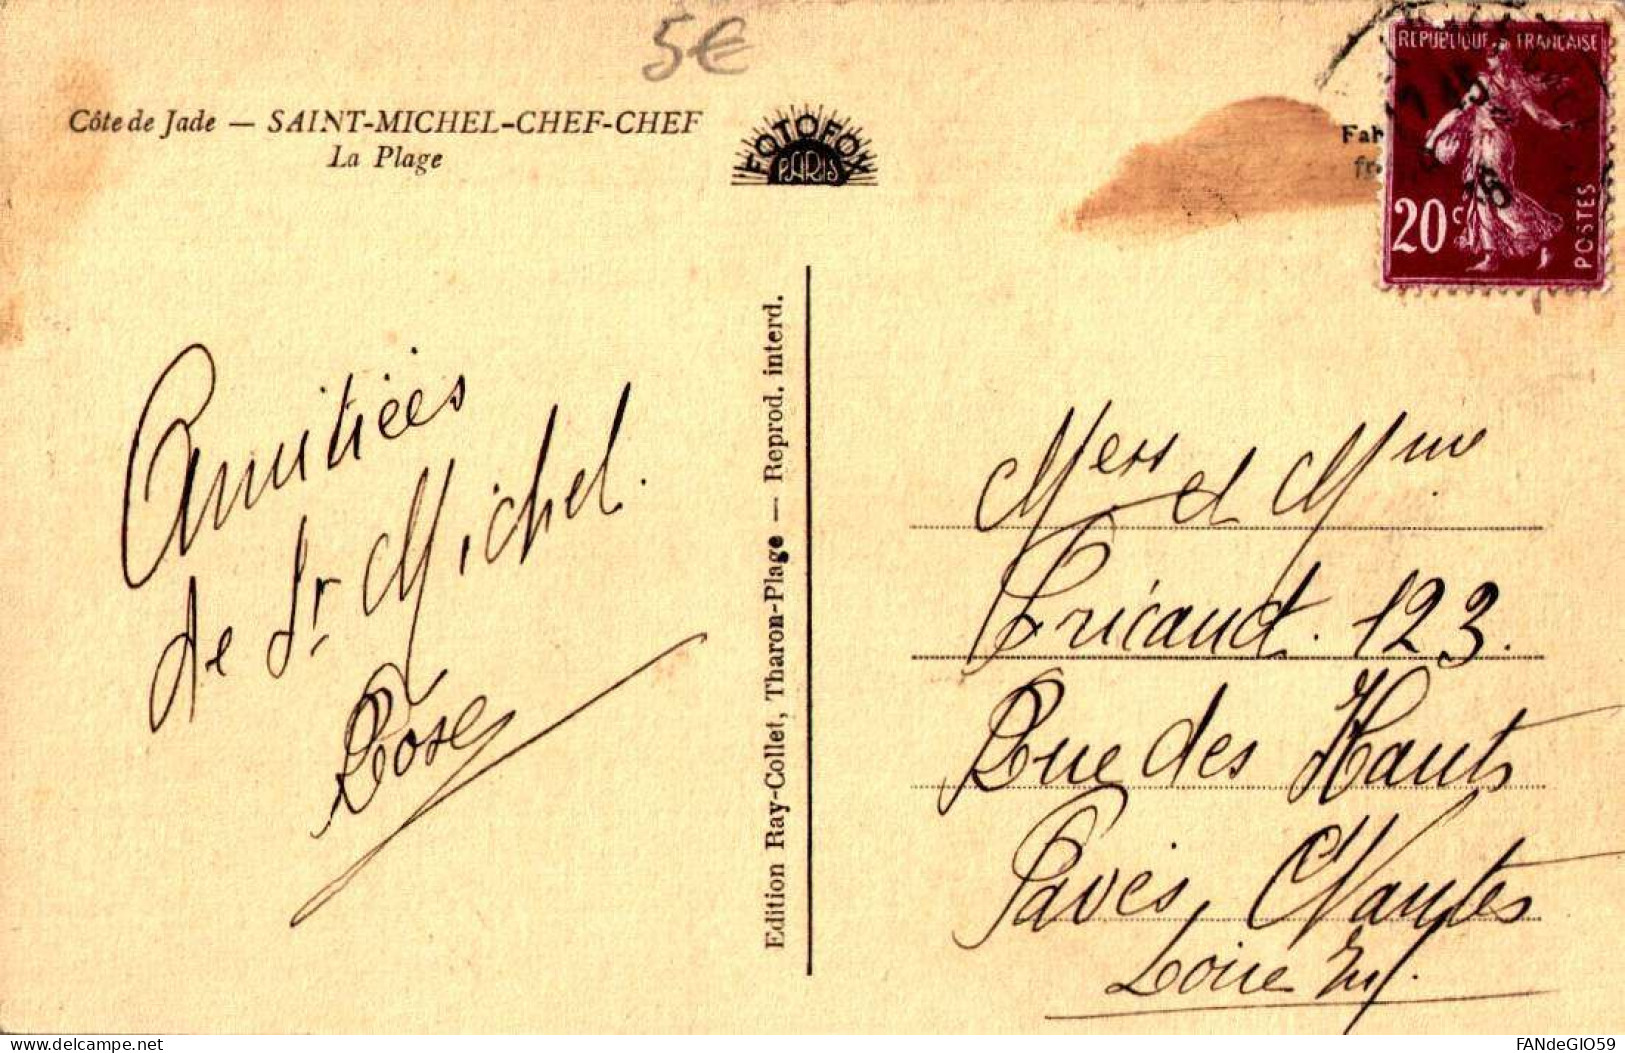 5€
Côte de Jade — SAINT-MICHEL-CHEF-CHEF
La Plage
FOTOFOX
PARIS
Fab
fr
REPUBLIQUE FRANCAISE
20c
POSTES
Amitiées
de St Michel.
Rose
Edition Ray-Collet, Tharon-Plage — Reprod. interd.
Merr et Mme
Fricaud. 123.
Rue des Hauts
Pavés, Nantes
Loire Inf.
delcampe.net
FANdeGIO59